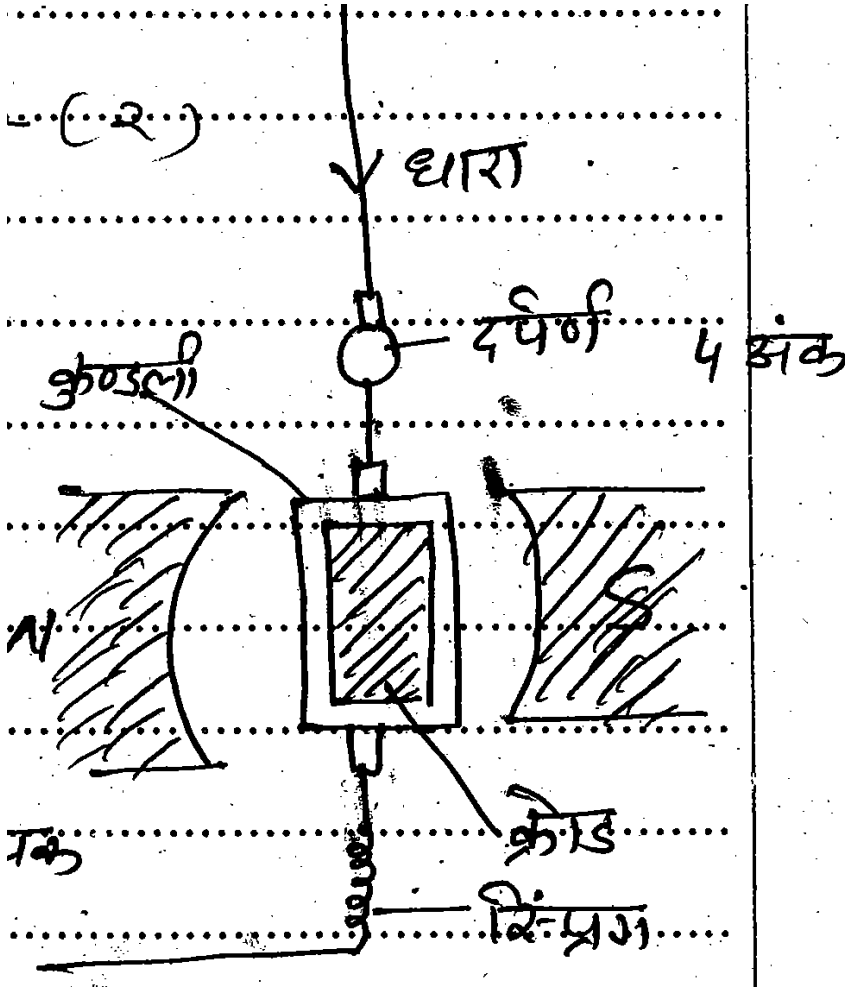 -(२)
धारा
दर्पण
५ अंक
कुण्डली
N
S
क्रोड
स्प्रिंग